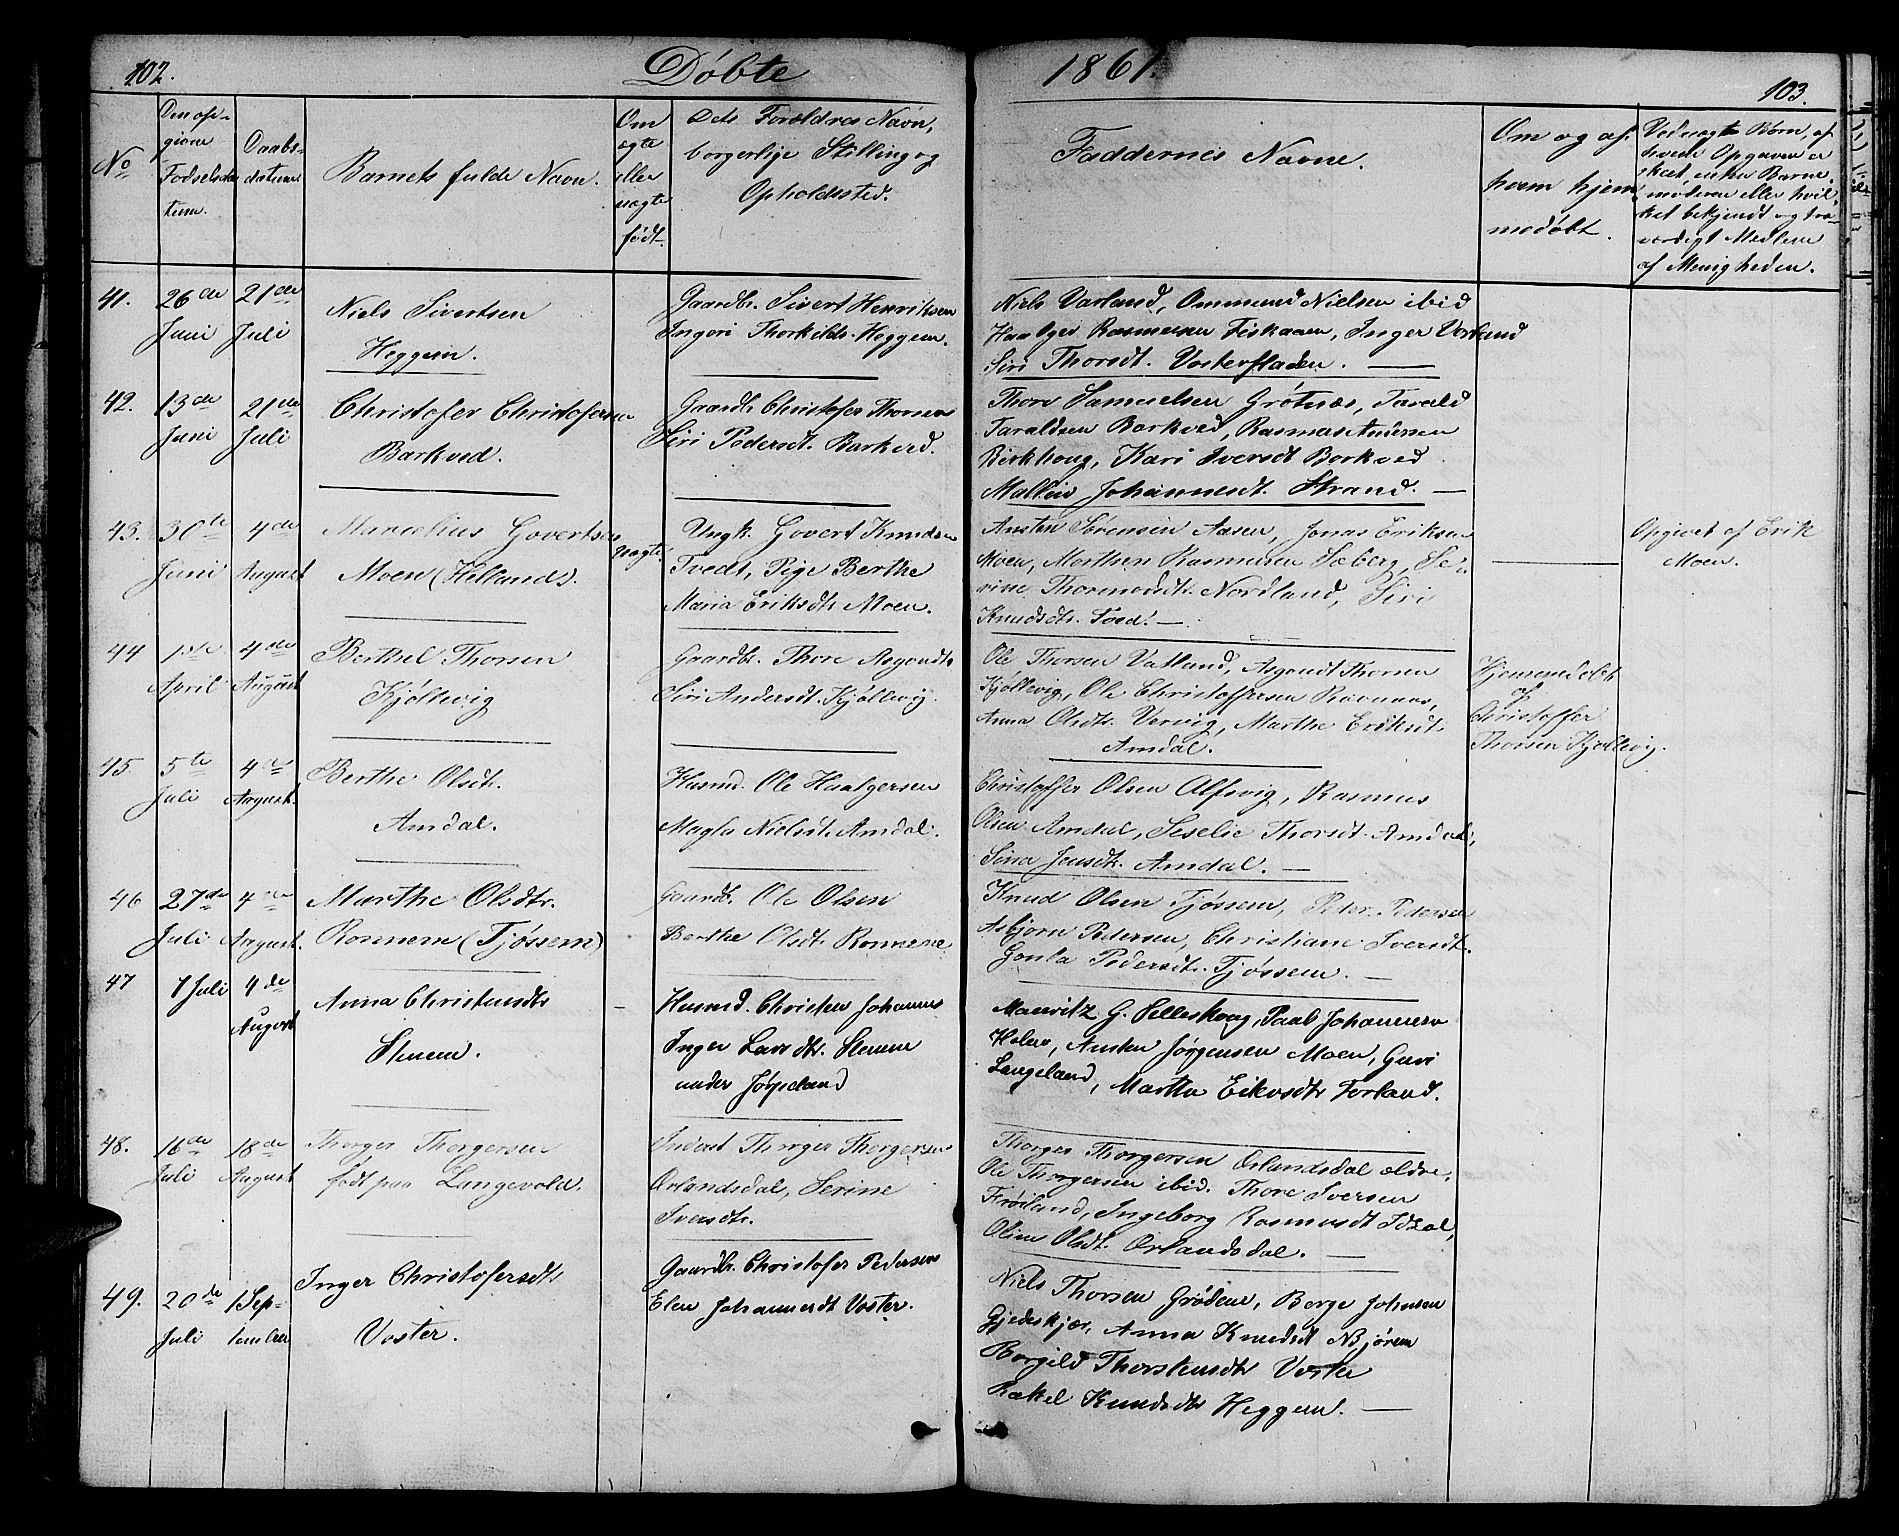 102.
Døbte
1861.
103.
No
Den op-
givne
Fødselsda-
tum.
Daabs-
datum
Barnets fulde Navn.
Om
ægte
eller
uægte
født.
Dets Forældres Navn,
borgerlige Stilling og
Opholdssted.
Faddernes Navne.
Om og af
hvem hjem-
medøbt.
Vedr. uægte Børn, af
hvem Opgaven er
skeet, enten Barne-
moderen eller hvil-
ket bekjendt og tro-
værdigt Medlem
af Menigheden.
41.
26de
Juni
21de
Juli
Niels Sivertsen
Heggem.
Gaardbr. Sivert Henriksen
Ingeri Thorkildsd. Heggem.
Niels Varland, Ommund Nielsen ibid
Haalger Rasmussen Fiskaaen, Inger Varland
Siri Thorsdt. Vosterfladen.
42.
13de
Juni
21de
Juli
Christofer Christofersen
Barkved.
Gaardb. Christofer Thorsen
Siri Pedersdt. Barkved.
Thore Samuelsen Grøtnæs, Tarald
Taraldsen Barkved, Rasmus Andersen
Birkhoug, Kari Iversdt Borkved
Malene Johannesdt. Strand.
43.
30te
Juni
4de
August
Marcelius Govertsen
Moen (Helland).
uægte
Ungk. Govert Knudsen
Tvedt, Pige Berthe
Maria Eriksdt. Moen.
Austen Sørensen Aasen, Jonas Eriksen
Moen, Morthen Rasmussen Soberg, Se-
rine Thormodsdt. Nordland, Siri
Knudsdt. Tved.
Opgivet af Erik
Moen.
44
1ste
April
4de
August
Berthel Thorsen
Kjøllevig
Gaardbr. Thore Asgoudts
Siri Andersdt. Kjøllevig.
Ole Thorsen Vatland, Asgoudt Thorsen
Kjøllevig, Ole Christoffersen Ravnaas,
Anna Olsdt. Vervig, Marthe Eriksdt
Amdal.
Hjemmedøbt
af
Christoffer
Thorsen Kjøllevig.
45.
5te
Juli
4de
August.
Berthe Olsdt.
Amdal.
Husmd. Ole Haalgersen
Magla Nielsdt. Amdal.
Christoffer Olsen Alfsvig, Rasmus
Olsen Amdal, Seselie Thorsdt. Amdal,
Sina Jensdt. Amdal.
46
27de
Juli
4de
August.
Marthe Olsdtr.
Ronnem (Tjøssem)
Gaardb. Ole Olsen
Berthe Olsdt. Ronnene
Knud Olsen Tjøssem, Peder Pedersen
Asbjørn Pedersen, Christiane Iversdt.
Gonla Pedersdt. Tjøssem.
47
7 Juli
4de
August
Anna Christensdtr
Stenen.
Husmd. Christen Johannes
Inger Larsdtr. Stenene
under Jørpeland
Mauritz G. Selleskoug, Paal Johannesen
Holm, Austen Jørgensen Moen, Guri
Langeland, Martha Eikesdtr Forland.
48.
16de
Juli
18de
August
Thorger Thorgersen
født paa Langevold.
Inderst Thorger Thorgersen
Ørlandsdal, Serine
Iversdt.
Thorger Thorgersen Ørlandsdal ældre,
Ole Thorgersen ibid. Thore Iversen
Frøiland, Ingeborg Rasmusdt Idsal,
Oline Olsdt. Ørlandsdal.
49.
20de
Juli
1 Sep-
tember
Inger Christofersdtr
Voster.
Gaardbr. Christofer Pedersen
Elen Johannesdt Voster.
Niels Thorsen Grødem, Børge Johnsen
Gjedeskjær, Anna Knudsdt N.Bjørem
Borgild Thorstensdtr Voster
Rakel Knudsdtr Heggem.